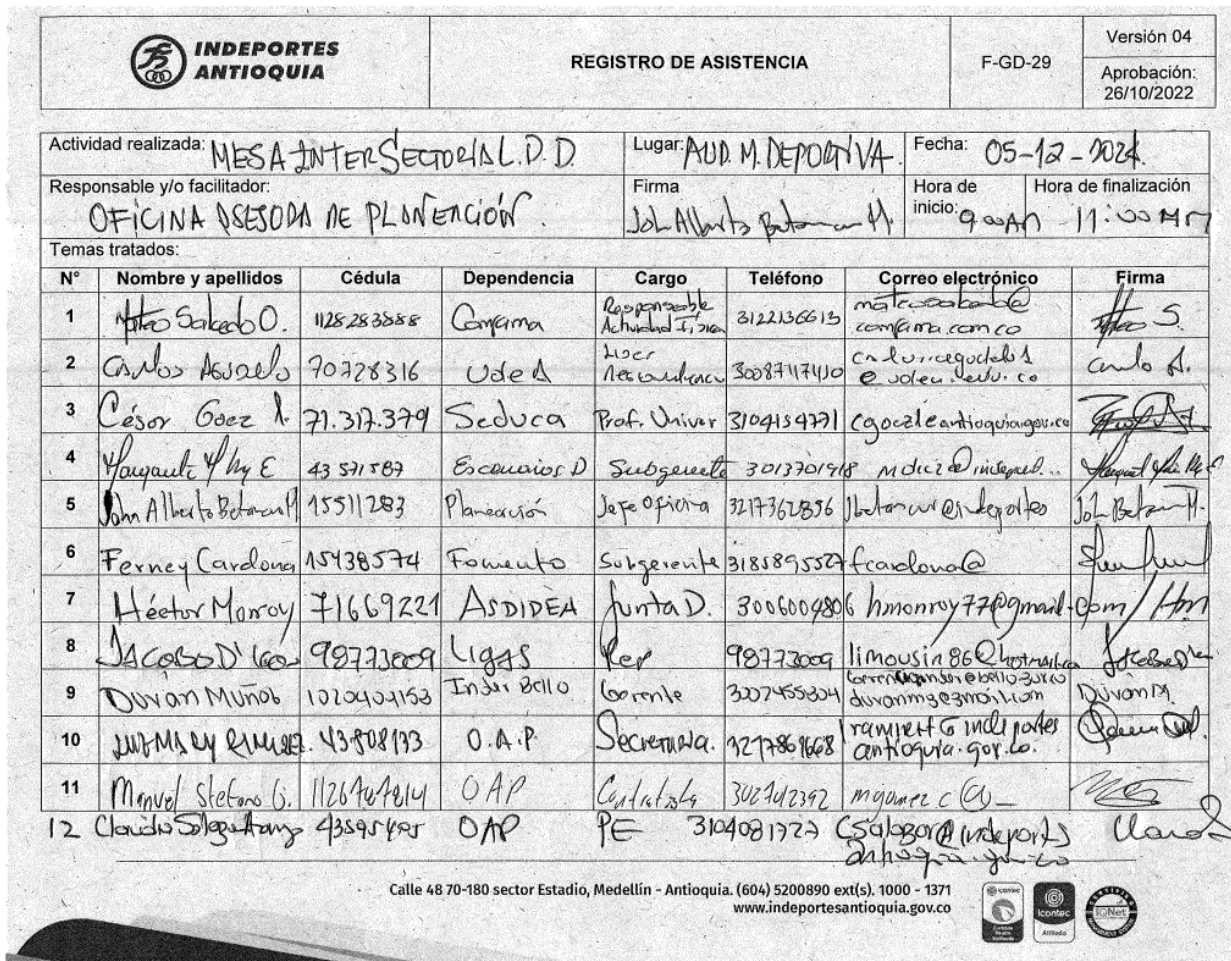 INDEPORTES
ANTIOQUIA
REGISTRO DE ASISTENCIA
F-GD-29
Versión 04
Aprobación:
26/10/2022
Actividad realizada: MESA INTERSECTORIAL. D. D.
Lugar: AUD. M. DEPORTIVA.
Fecha: 05-12-2024.
Responsable y/o facilitador:
OFICINA ASESORA DE PLANEACIÓN.
Firma
John Alberto Betancur M.
Hora de inicio: 9:00 AM
Hora de finalización
11:00 AM
Temas tratados:
N° Nombre y apellidos Cédula Dependencia Cargo Teléfono Correo electrónico Firma
1 Mateo Salcedo O. 1128283888 Comfama Responsable Actividad Física 3122136613 comfama.com.co
2 Carlos Agudelo 70728316 UdeA Lider 3008747410 Carlo A.
3 César Goez 71.317.379 Seduca Prof. Univer 3104154771 antioquia.gov.co
4 43571587 Escenarios D Subgerente 3013701918
5 John Alberto Betancur M 15511283 Planeación Jefe Oficina 3217362856 Jbetancur@indeportes
6 Ferney Cardona 15438574 Fomento Subgerente 3185895527 fcardona@
7 Héctor Monroy 71669221 ASDIDEA Junta D. 3006004806 hmonroy77@gmail.com / Hm
8 JACOBO D' 98773009 LIGAS Rep 98773009 limousin86@hotmail.co
9 DUVAN MUÑOZ 1020404153 Inder Bello Gerente 3007455804 DUVAN M
10 LUZ MARY RAMIREZ. 43808133 O.A.P. Secretaria. antioquia.gov.co.
11 Manuel Stefano G. OAP Contratista 302742392 mgomez c @
12 OAP PE 3104081727
Calle 48 70-180 sector Estadio, Medellín - Antioquia. (604) 5200890 ext(s). 1000 - 1371
www.indeportesantioquia.gov.co
icontec
icontec
Afiliado
IQNet